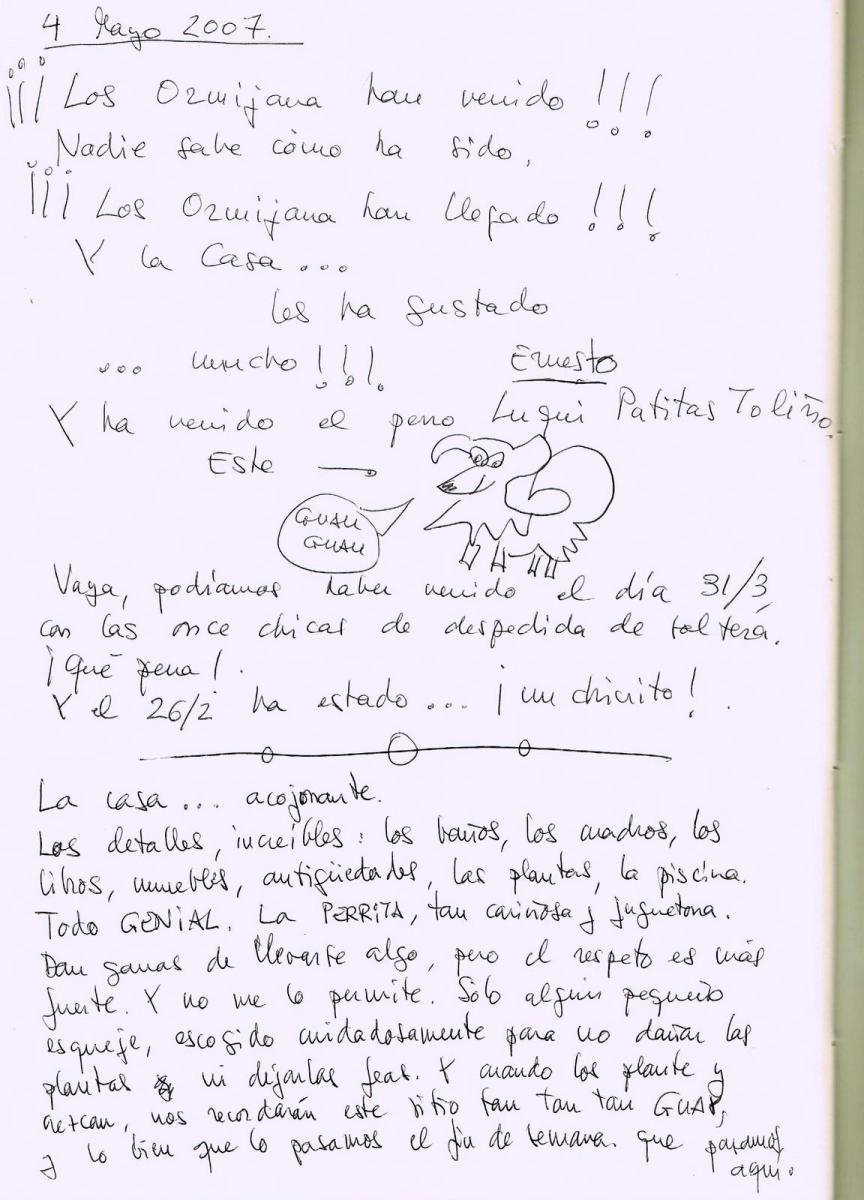 4 Mayo 2007.
¡¡¡ Los Ozmijana han venido !!!
Nadie sabe cómo ha sido,
¡¡¡ Los Ozmijana han llegado !!!
Y la Casa ...
les ha gustado
... mucho !!!
Ernesto
Y ha venido el perro Luqui Patitas Toliño.
Este
GUAU
GUAU
Vaya, podíamos haber venido el día 31/3,
con las once chicas de despedida de soltera.
¡Qué pena!.
Y el 26/2 ha estado ... ¡un chiquito!.
La casa ... acojonante.
Los detalles, increíbles: los baños, los cuadros, los
libros, muebles, antigüedades, las plantas, la piscina.
Todo GENIAL. La PERRITA, tan cariñosa y juguetona.
Dan ganas de llevarse algo, pero el respeto es más
fuerte. Y no me lo permite. Sólo algún pequeño
esqueje, escogido cuidadosamente para no dañar las
plantas ni dejarlas feas. Y cuando los plante y
crezcan, nos recordarán este sitio tan tan tan GUAY,
y lo bien que lo pasamos el fin de semana. que pasamos
aquí.